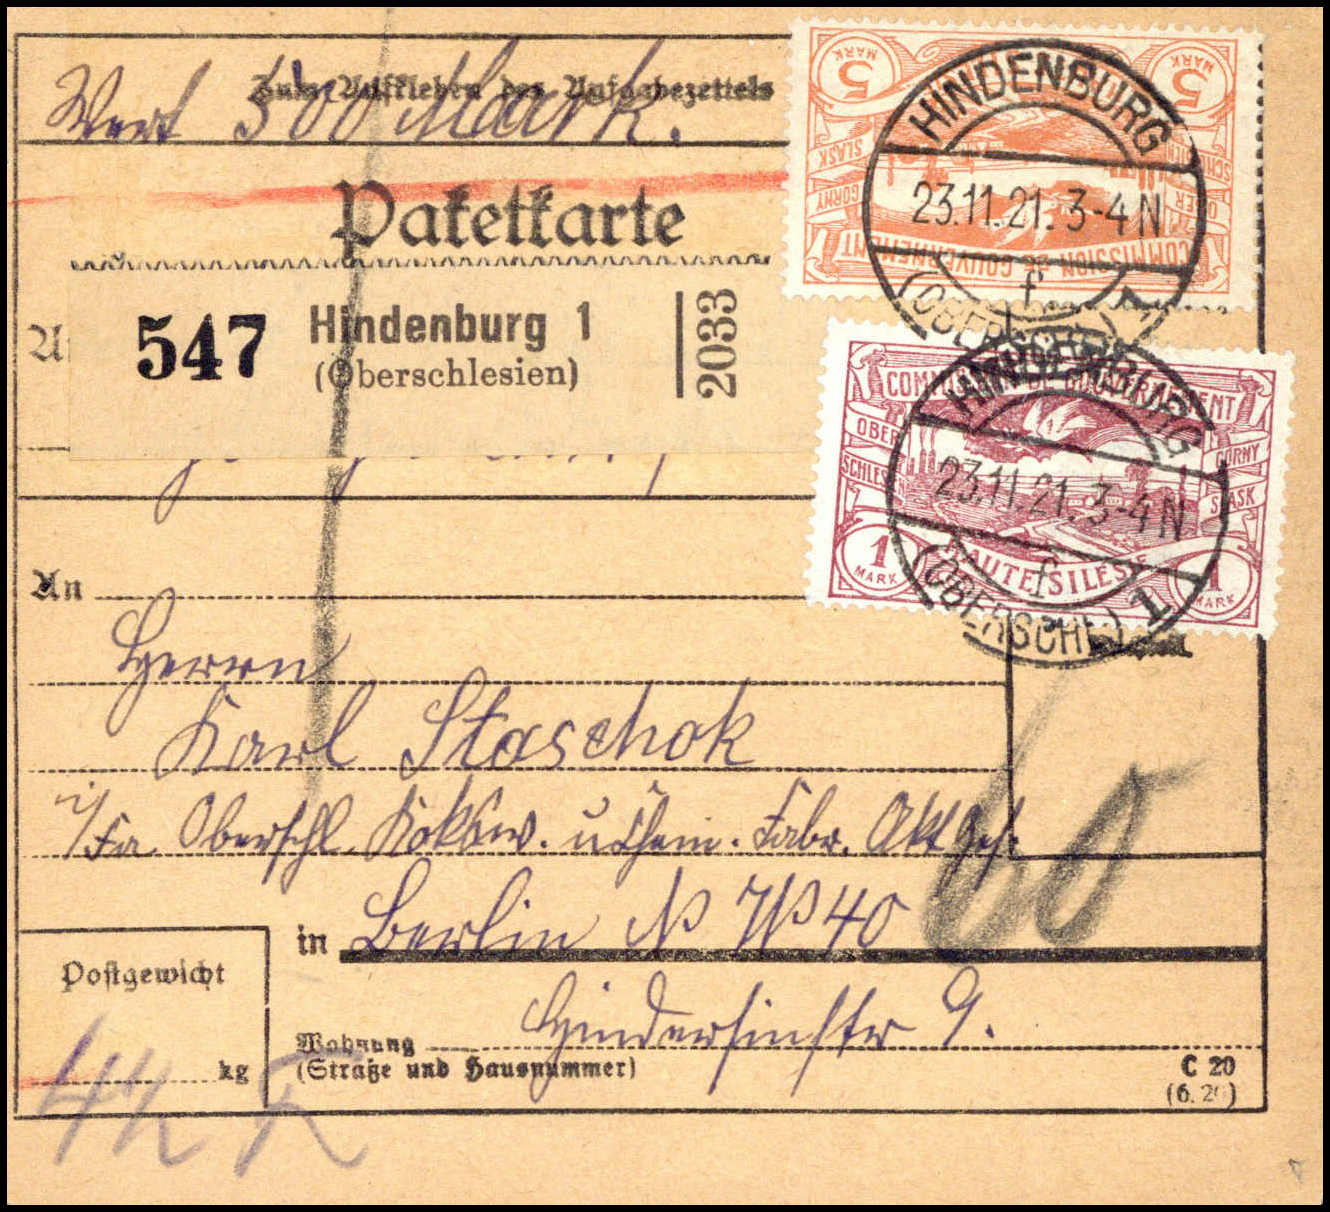 Zum Aufkleben des Aufgabezettels
Wert 500 Mark.
Paketkarte
547 Hindenburg 1
(Oberschlesien)
2033
5 MARK 5 MARK
OBER SCHLESIEN GORNY SLASK
COMMISSION DE GOUVERNEMENT
HINDENBURG
23.11.21. 3-4 N
f
(OBERSCHL.) 1
COMMISSION DE GOUVERNEMENT
OBER SCHLESIEN GORNY SLASK
1 MARK HAUTE SILESIE 1 MARK
HINDENBURG
23.11.21. 3-4 N
f
(OBERSCHL) 1
An
Herrn
Karl Staschok
i/Fa. Oberschl. Koksw. u Chem. Fabr. Akt Ges.
in Berlin N W 40
60
Hindersinstr 9.
Postgewicht
kg
Wohnung
(Straße und Hausnummer)
C 20
(6. 20)